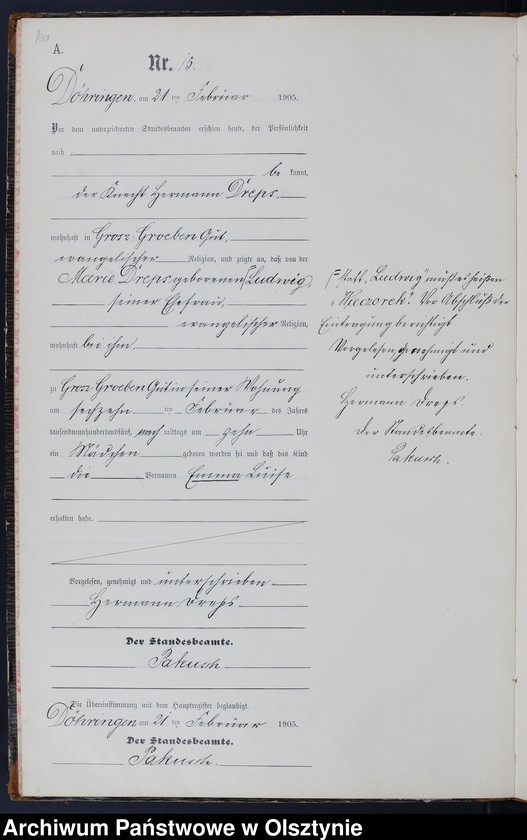 A.
Nr. 15.
Döhringen, am 21 ten Februar 1905.
Vor dem unterzeichneten Standesbeamten erschien heute, der Persönlichkeit
nach
be kannt,
der Knecht Hermann Dreps,
wohnhaft in Gross-Groeben Gut,
evangelischer Religion, und zeigte an, daß von der
Marie Dreps geborenen Ludwig,
seiner Ehefrau
evangelischer Religion,
wohnhaft bei ihm,
zu Gross-Groeben Gut in seiner Wohnung
am sechzehn ten Februar des Jahres
tausendneunhundertundfünf, nach mittags um zehn Uhr
ein Mädchen geboren worden sei und daß das Kind
die Vornamen Emma Luise
erhalten habe.
Vorgelesen, genehmigt und unterschrieben
Hermann Dreps
Der Standesbeamte.
Pakusch
Die Übereinstimmung mit dem Hauptregister beglaubigt.
Döhringen am 21 ten Februar 1905.
Der Standesbeamte.
Pakusch.
statt "Ludwig" muß es heißen
"Wieczorek". Vor Abschluß der
Eintragung berichtigt
Vorgelesen, genehmigt und
unterschrieben.
Hermann Dreps.
Der Standesbeamte.
Pakusch.
Archiwum Państwowe w Olsztynie